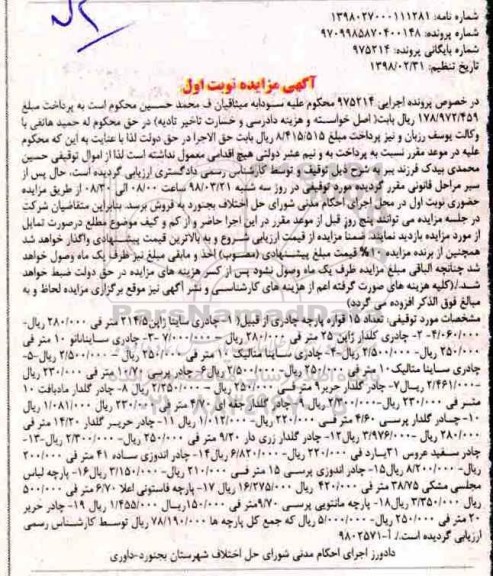 شماره نامه: ۱۳۹۸۰۲۷۰۰۰۱۱۱۲۸۱
شماره پرونده: ۹۷۰۹۹۸۵۸۷۰۴۰۰۱۴۸
شماره بایگانی پرونده: ۹۷۵۲۱۴
تاریخ تنظیم: ۱۳۹۸/۰۲/۳۱
آگهی مزایده نوبت اول
در خصوص پرونده اجرایی ۹۷۵۲۱۴ محکوم علیه سودابه میثاقیان ف محمد حسین محکوم است به پرداخت مبلغ
۱۷۸/۹۷۲/۴۵۹ ریال بابت( اصل خواسته و هزینه دادرسی و خسارت تاخیر تادیه) در حق محکوم له حمید هاتفی با
وکالت یوسف رزبان و نیز پرداخت مبلغ ۸/۴۱۵/۵۱۵ ریال بابت حق الاجرا در حق دولت لذا با عنایت به این که محکوم
علیه در موعد مقرر نسبت به پرداخت به و نیم عشر دولتی هیچ اقدامی معمول نداشته است لذا از اموال توقیفی حسین
محمدی بیدک فرزند ببر به شرح ذیل توقیف و توسط کارشناس رسمی دادگستری ارزیابی گردیده است، حال پس از
سیر مراحل قانونی مقرر گردیده مورد توقیفی در روز سه شنبه ۹۸/۰۳/۲۱ ساعت ۰۸/۰۰ الی ۰۸/۳۰ از طریق مزایده
حضوری نوبت اول در محل اجرای احکام مدنی شورای حل اختلاف بجنورد به فروش برسد. بنابراین متقاضیان شرکت
در جلسه مزایده می توانند پنج روز قبل از موعد مقرر در این اجرا حاضر و از کم و کیف موضوع مطلع درصورت تمایل
از مورد مزایده بازدید نمایند. ضمناً مزایده از قیمت ارزیابی شروع و به بالاترین قیمت پیشنهادی واگذار خواهد شد
همچنین از برنده مزایده ۱۰% قیمت مبلغ پیشنهادی (مصوب) اخذ و مابقی مبلغ نیز ظرف یک ماه وصول خواهد
شد چنانچه الباقی مبلغ مزایده ظرف یک ماه وصول نشود پس از کسر هزینه های مزایده در حق دولت ضبط خواهد
شد./(کلیه هزینه های صورت گرفته اعم از هزینه های کارشناسی و نشر آگهی نیز موقع برگزاری مزایده لحاظ و به
مبالغ فوق الذکر افزوده می گردد)
مشخصات مورد توقیفی: تعداد ۱۵ قواره پارچه چادری از قبیل( ۱- چادری ساینا ژاپن ۲۱۴/۵ متر فی ۲۸۰/۰۰۰ ریال-
۴/۰۶۰/۰۰۰- ۲- چادری کلدار ژاپن ۲۵ متر فی ۲۸۰/۰۰۰ ریال- ۷/۰۰۰/۰۰۰ -۳- چادری سایناناتو ۱۰ متر فی
۲۵۰/۰۰۰ ریال-۲/۵۰۰/۰۰۰ ریال-۴- چادری ساینا متالیک ۱۰ متر فی ۲۵۰/۰۰۰ ریال- ۲/۵۰۰/۰۰۰ ریال-۵-
چادری ساینا متالیک ۱۰ متر فی ۲۵۰/۰۰۰ ریال- ۲/۵۰۰/۰۰۰ ریال-۶- چادر پرسی ۱۰/۷۰ متر فی ۲۳۰/۰۰۰ ریال
-۲/۴۶۱/۰۰۰ ریال-۷- چادر گلدار حریر ۹ متر فی ۲۵۰/۰۰۰ ریال- ۲/۲۵۰/۰۰۰ ریال ۸- چادر گلدار مادبافت ۱۰
متر فی ۲۳۰/۰۰۰ ریال-۲/۳۰۰/۰۰۰ ریال ۹- چادر گلدار ۴/۷۰ متر فی ۲۳۰/۰۰۰ ریال ۱/۰۸۱/۰۰۰ ریال
۱۰- چادر گلدار پرسی ۴/۶۰ متر فی ۲۲۰/۰۰۰ ریال-۱/۰۱۲/۰۰۰ ریال ۱۱- چادر حریر گلدار ۱۴/۲۰ متر فی
۲۸۰/۰۰۰ ریال -۳/۹۷۶/۰۰۰ ریال ۱۲- چادر گلدار زری دار ۹/۲۰ متر فی ۲۵۰/۰۰۰ ریال-۲/۳۰۰/۰۰۰ ریال-۱۳-
چادر سفید عروس ۳۱ یارد فی ۲۲۰/۰۰۰ ریال-۶/۸۲۰/۰۰۰ ریال ۱۴- چادر اندوزی ساده ۴۱ متر فی ۲۰۰/۰۰۰
ریال-۸/۲۰۰/۰۰۰ ریال ۱۵- چادر اندوزی پرسی ۱۵ متر فی ۲۱۰/۰۰۰ ریال-۳/۱۵۰/۰۰۰ ریال ۱۶- پارچه لباس
مجلسی مشکی ۳۸/۷۵ متر فی ۴۲۰/۰۰۰ ریال ۱۶/۲۷۵/۰۰۰ ریال ۱۷- پارچه فاستونی اعلا ۶/۷۰ متر فی ۵۰۰/۰۰۰
ریال ۳/۳۵۰/۰۰۰ ریال ۱۸- پارچه مانتویی پرسی ۹/۷۰متر فی ۱۵۰/۰۰۰ریال ۱/۴۵۵/۰۰۰ ریال ۱۹- چادر حریر
۲۰ متر فی ۲۵۰/۰۰۰ ریال-۵/۰۰۰/۰۰۰ ریال که جمع کل پارچه ها ۷۸/۱۹۰/۰۰۰ ریال توسط کارشناس رسمی
ارزیابی گردیده است./ آ-۹۸۰۲۵۷۱
دادورز اجرای احکام مدنی شورای حل اختلاف شهرستان بجنورد-داوری